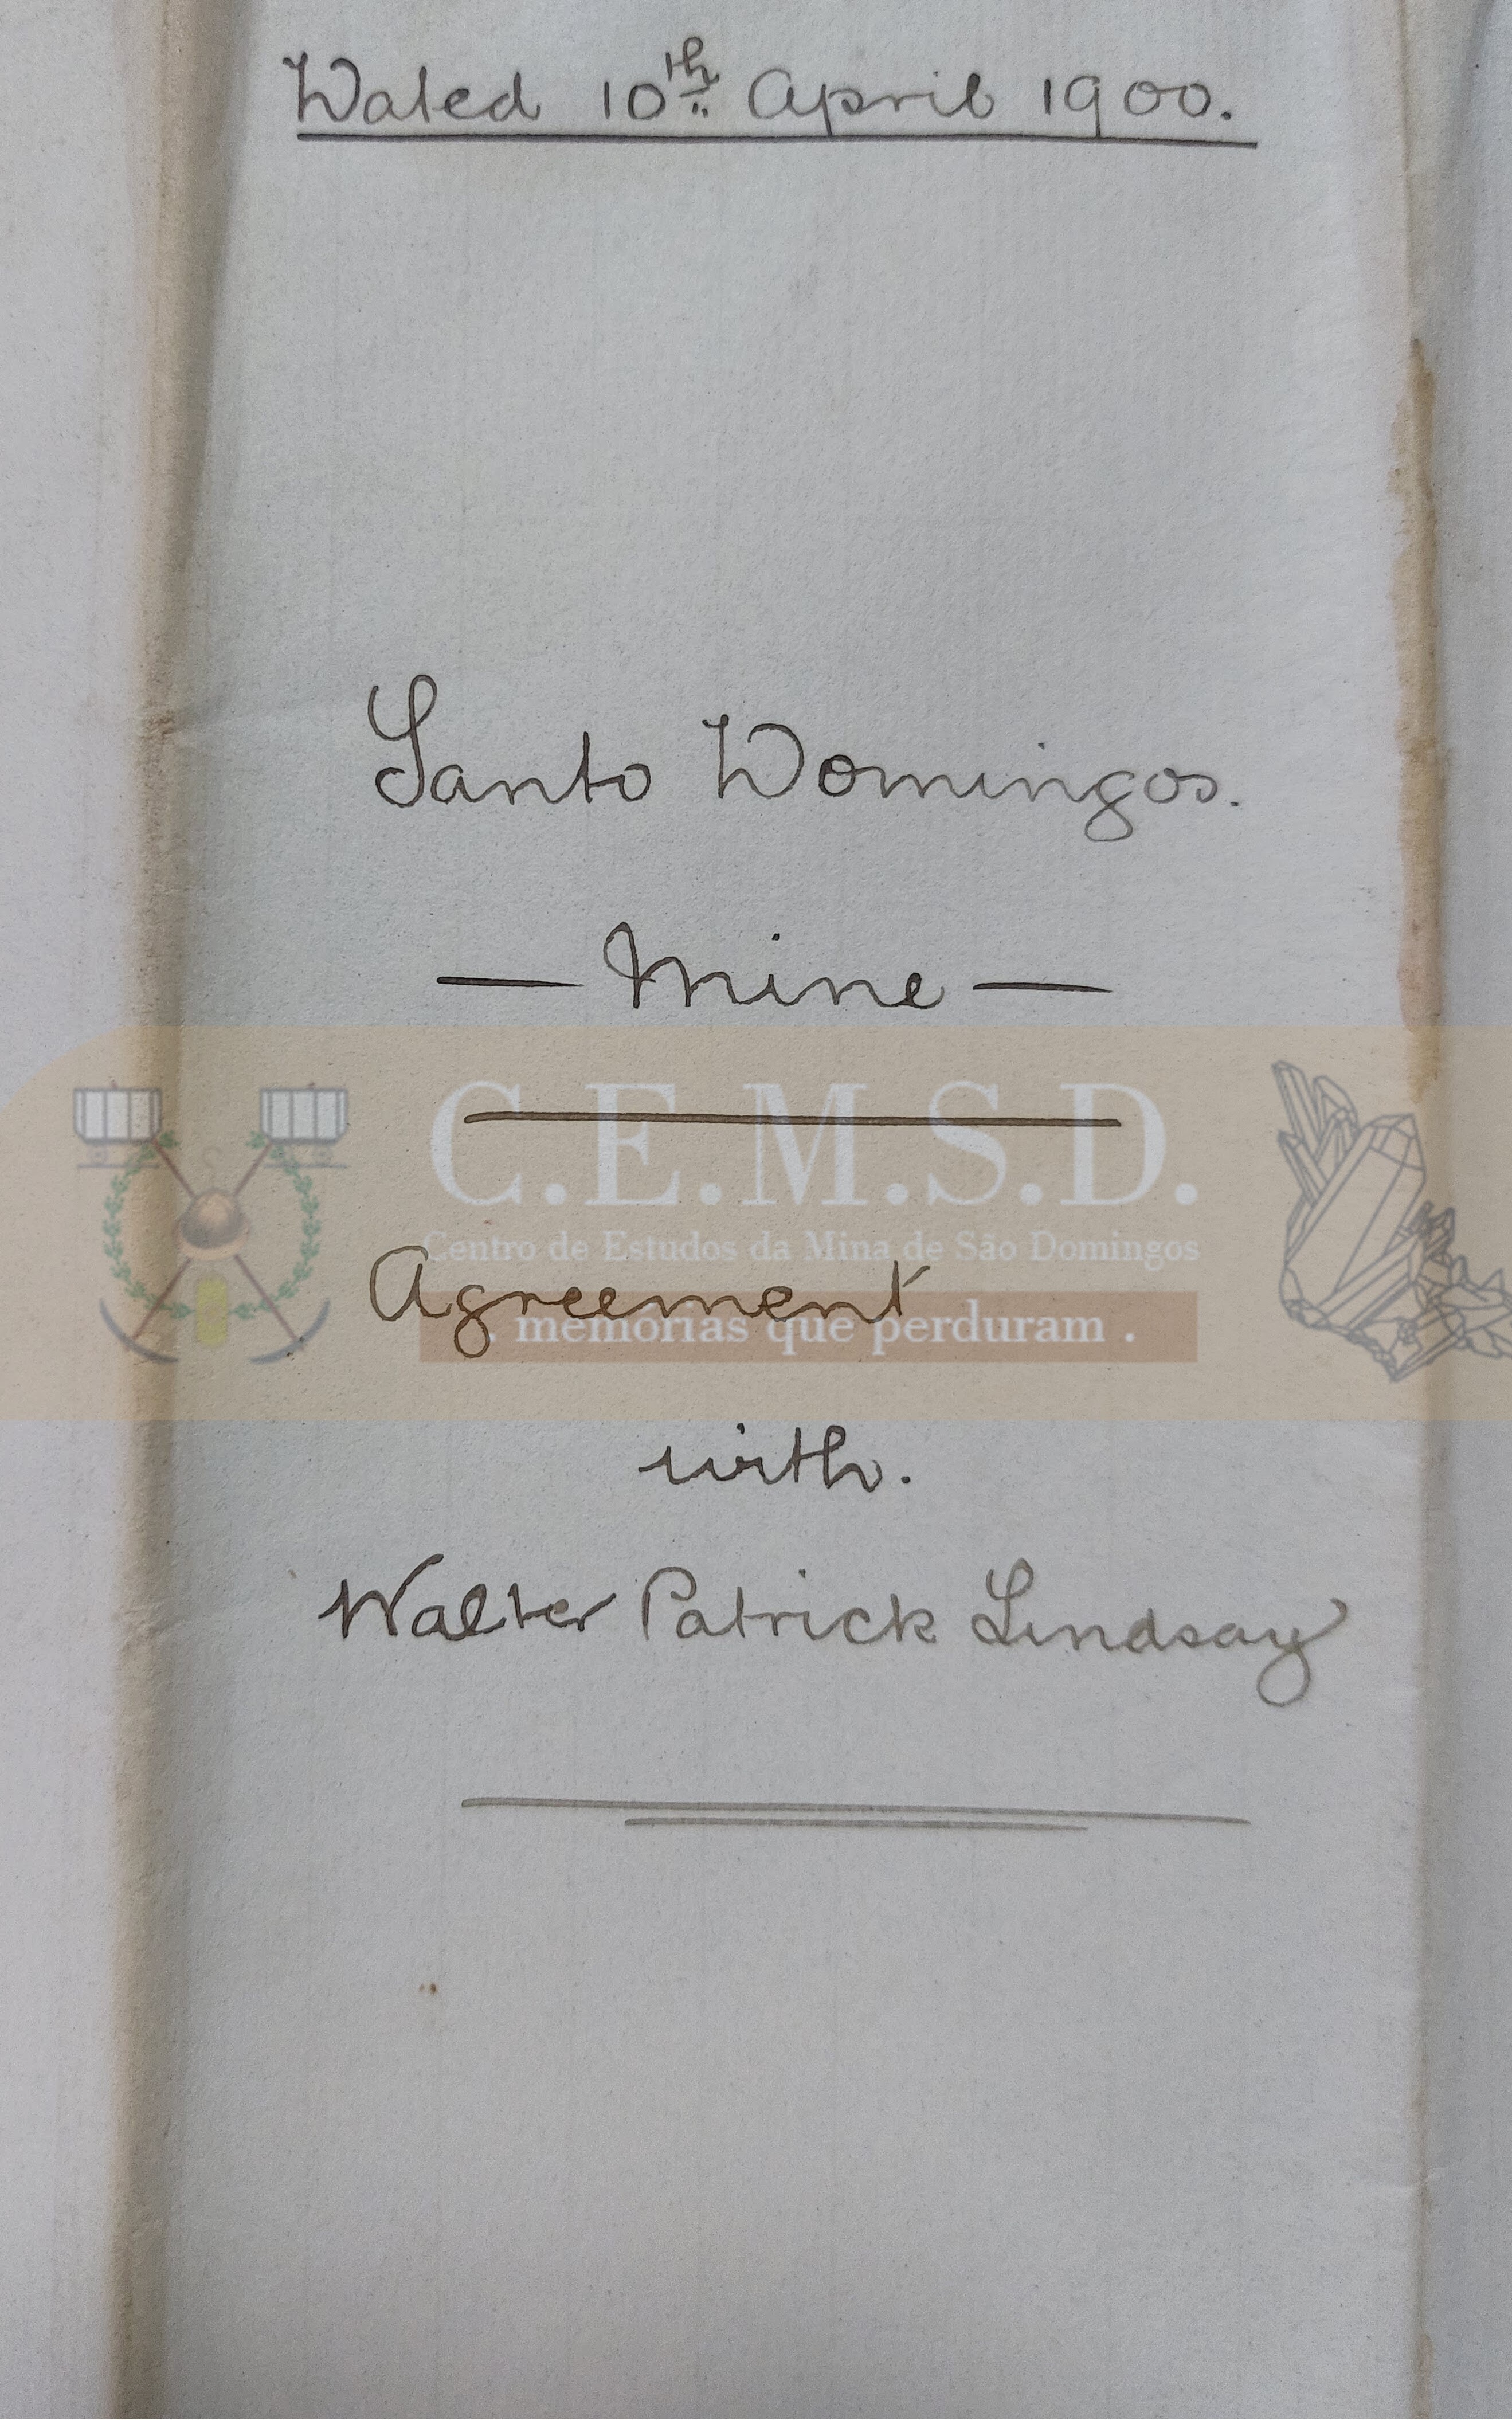 Dated 10th April 1900.
Santo Domingos.
— Mine —
C.E.M.S.D.
Centro de Estudos da Mina de São Domingos
Agreement
. memórias que perduram .
with.
Walter Patrick Lindsay